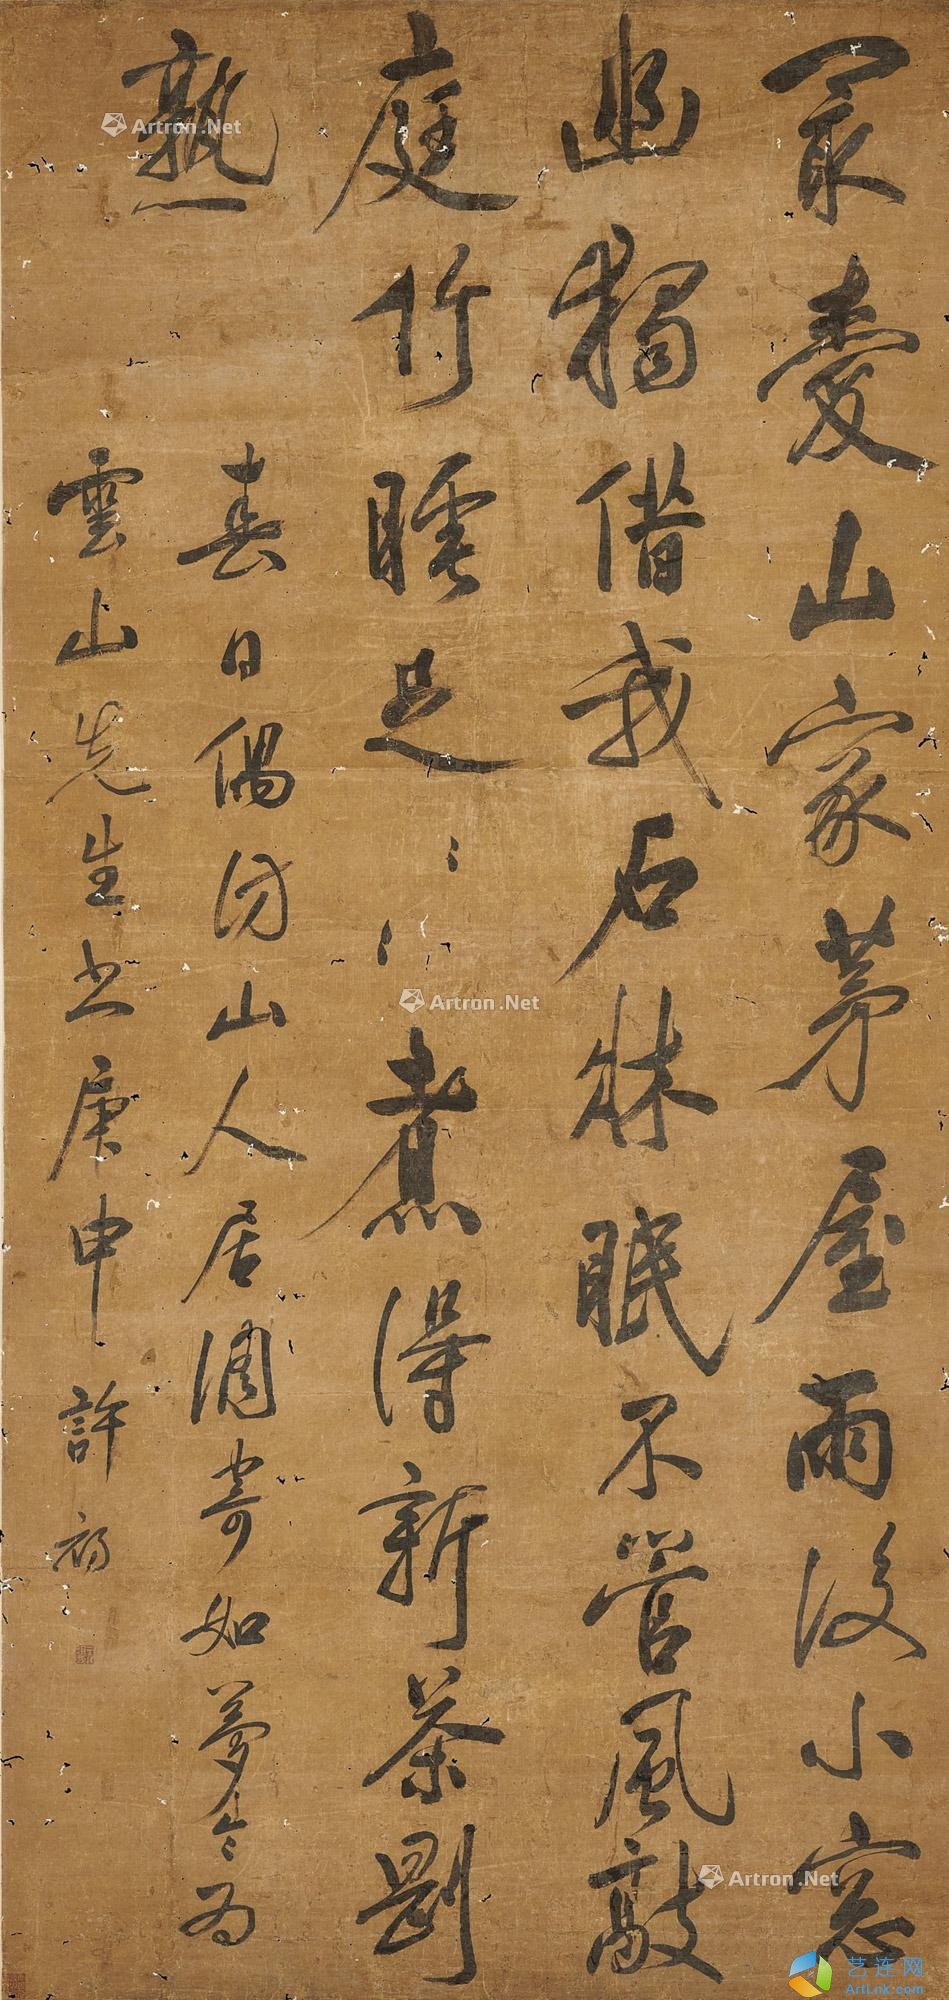 冣愛山家茅屋雨後小窓
幽獨借我石牀眠不管風敲
庭竹睡足〻〻煮得新茶剛
熟
春日偶訪山人居調寄如夢令為
雲山先生書庚申許初
Artron.Net
Artron.Net
Artron.Net
艺连网
ArtLnk.com